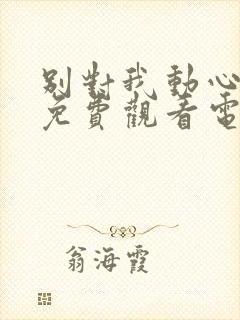 別對我動心
免費觀看電
翁海霞